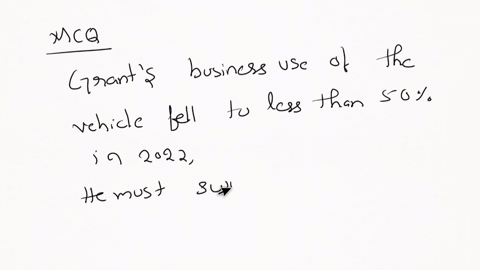 MCQ
Grant's business use of the
vehicle fell to less than 50%
in 2022,
He must